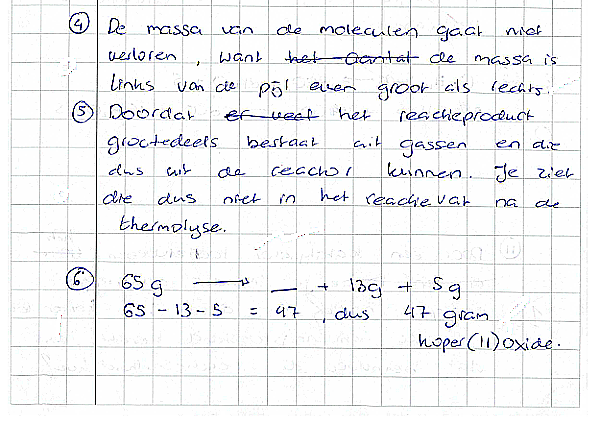 ④ De massa van de moleculen gaat niet
verloren, want het aantal de massa is
links van de pijl even groot als rechts.
⑤ Doordat er veel het reactieproduct
grootedeels bestaat uit gassen en die
dus uit de reactor kunnen. Je ziet
die dus niet in het reactievat na de
thermolyse.
⑥ 65 g → __ + 13g + 5 g
65 - 13 - 5 = 47, dus 47 gram
koper(II)oxide.